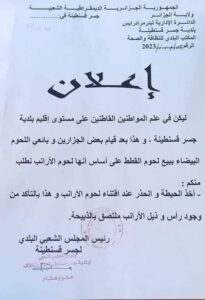 الجمهورية الجزائرية الديمقراطية الشعبية
ولاية الجزائر
الدائرة الإدارية لبئر مراد رايس
بلدية جسر قسنطينة
المكتب البلدي للنظافة والصحة
جسر قسنطينة في
2023
إعلان
ليكن في علم المواطنين القاطنين على مستوى إقليم بلدية
جسر قسنطينة ، و هذا بعد قيام بعض الجزارين و بائعي اللحوم
البيضاء ببيع لحوم القطط على أساس أنها لحوم الأرانب نطلب
منكم :
- أخذ الحيطة و الحذر عند اقتناء لحوم الأرانب و هذا بالتأكد من
وجود رأس و ذيل الأرانب ملتصق بالذبيحة.
رئيس المجلس الشعبي البلدي
لجسر قسنطينة